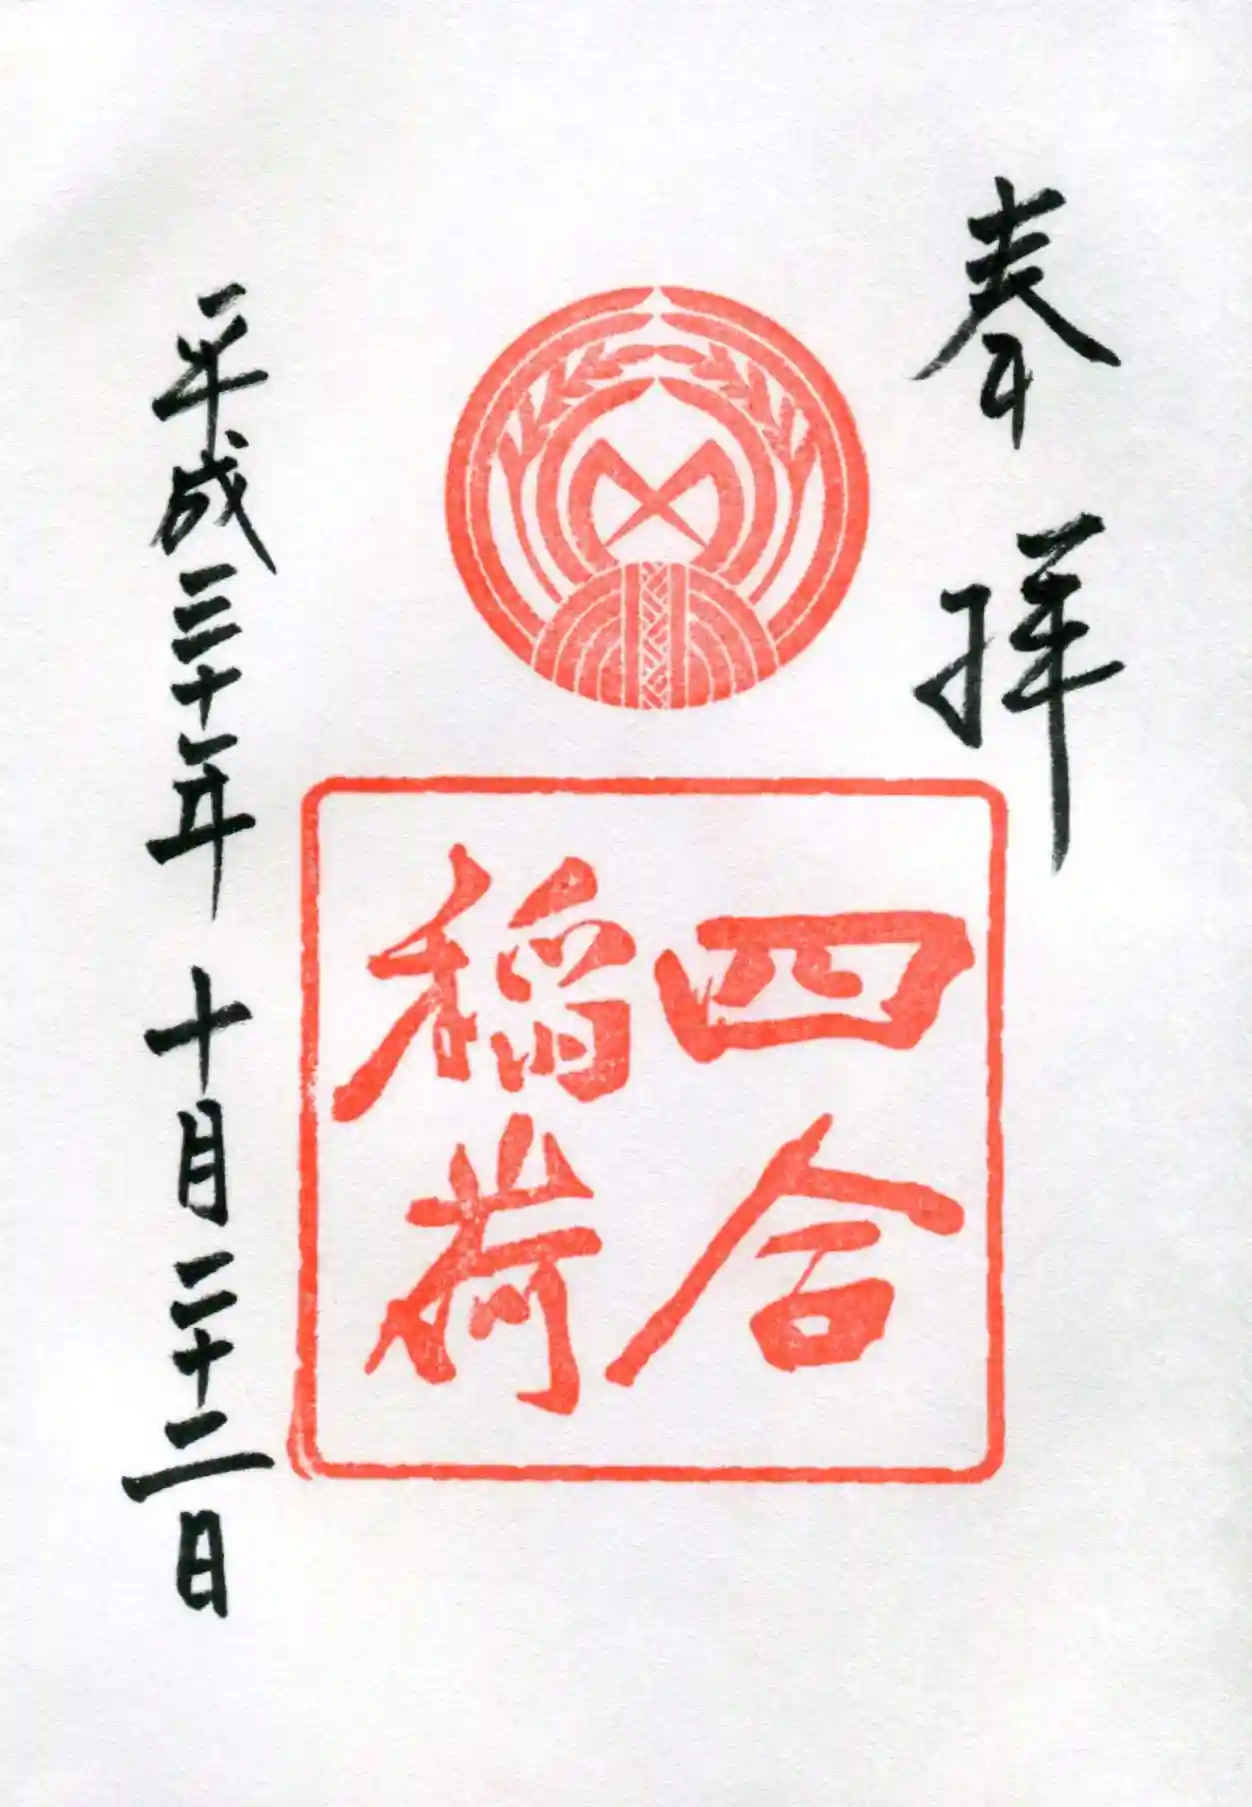 奉拝
四合
稲荷
平成三十年十月二十二日